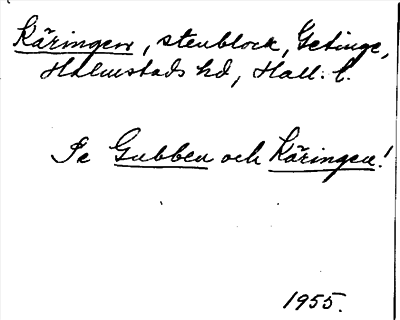 Käringen, stenblock, Getinge,
Halmstads hd, Hall. l.
Se Gubben och Käringen!
1955.